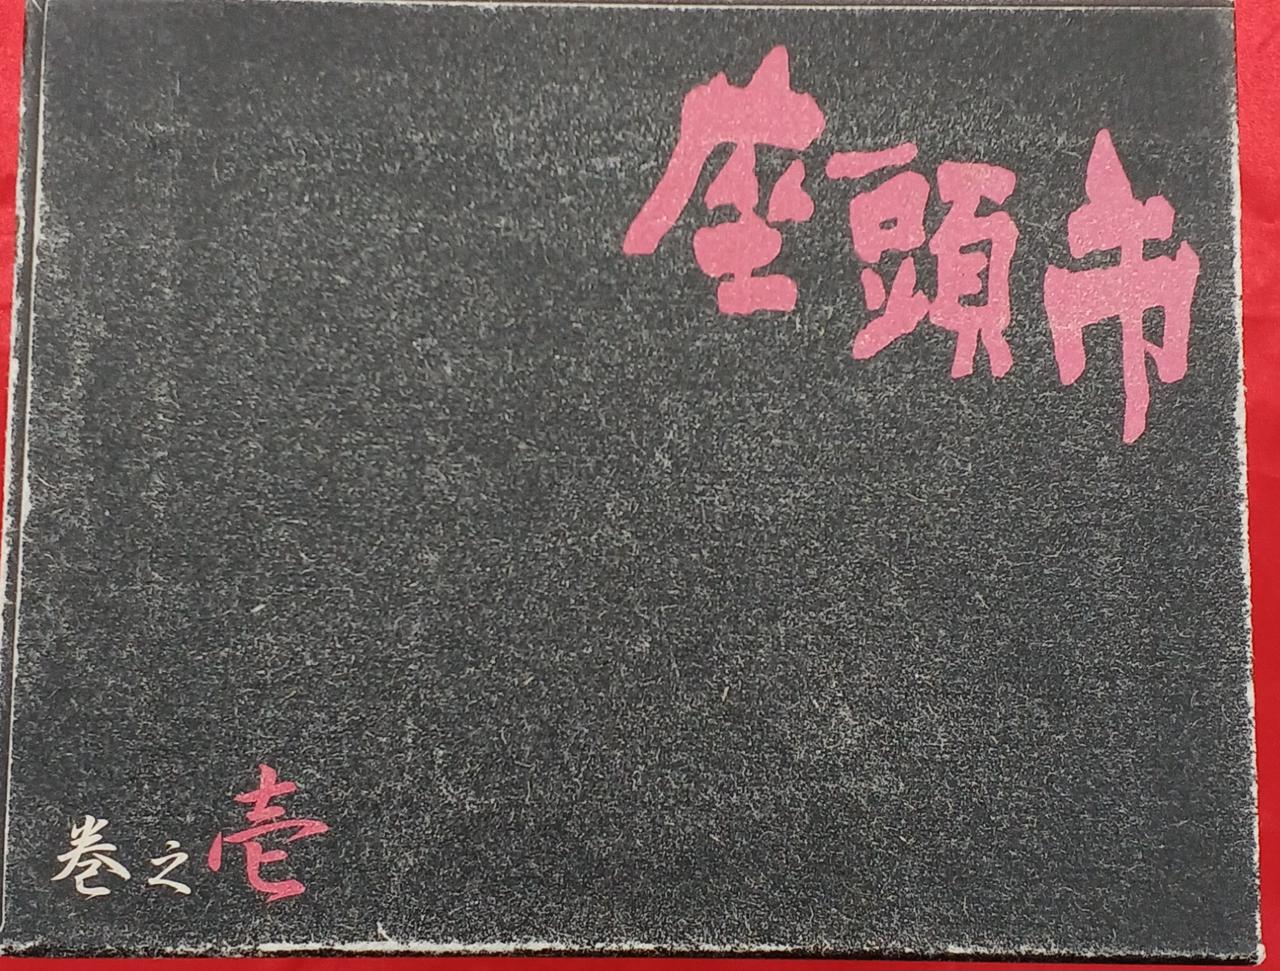 座頭市
巻之壱